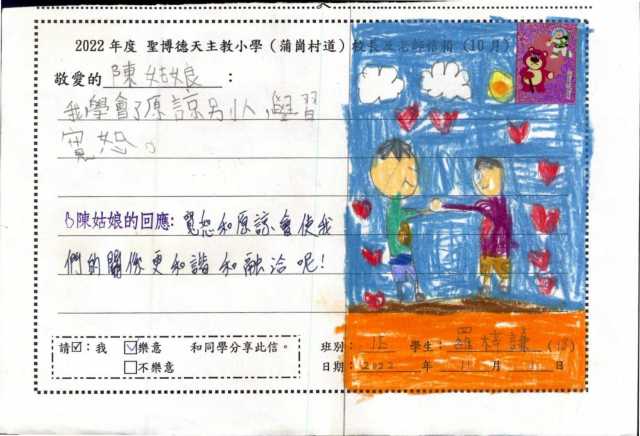 2022 年度 聖博德天主教小學（蒲崗村道）校長及老師信箱（10 月）
敬愛的 陳姑娘 ：
我學會了原諒另小人,學習
寬恕。
陳姑娘的回應: 寬恕和原諒會使我
們的關係更和諧和融洽呢!
請☑：我 ☑樂意 和同學分享此信。
☐不樂意
班別： 學生： 羅梓謙
日期：2022 年 11 月 日